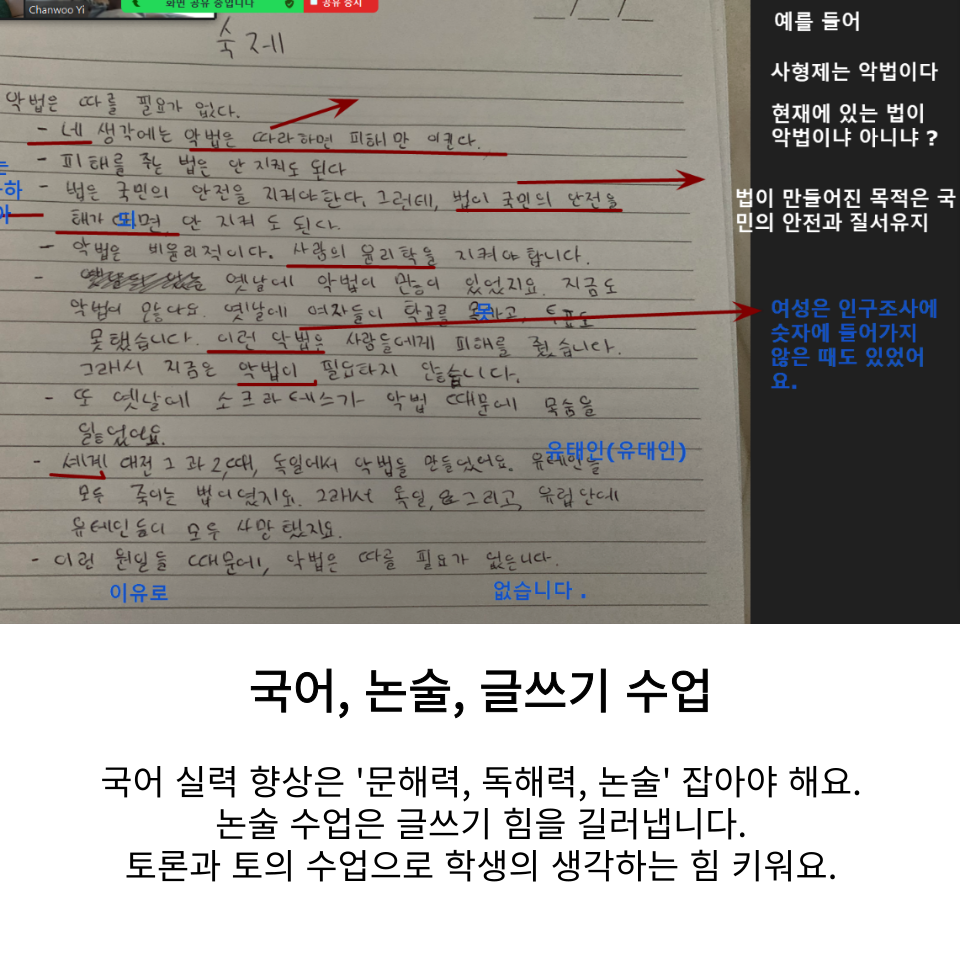 Chanwoo Yi
화면 공유 중입니다
공유 중지
예를 들어
사형제는 악법이다
현재에 있는 법이
악법이냐 아니냐 ?
법이 만들어진 목적은 국
민의 안전과 질서유지
여성은 인구조사에
숫자에 들어가지
않은 때도 있었어
요.
숙제
악법은 따를 필요가 없다.
- 네 생각에는 악법은 따라하면 피해만 이큰다.
- 피해를 주는 법은 안 지켜도 된다
- 법은 국민의 안전을 지켜야한다. 그런데, 법이 국민의 안전을
해가 되면, 안 지켜 도 된다.
- 악법은 비윤리적이다. 사람의 윤리탁을 지켜야 합니다.
- 옛날에 악법이 많이 있었지요. 지금도
악법이 많다요. 옛날에 여자들이 학교를 못가고, 투표도
못했습니다. 이런 악법은 사람들에게 피해를 줬습니다.
그래서 지금은 악법이 필요하지 않습니다.
- 또 옛날에 소크라테스가 악법 때문에 목숨을
잃었어요.
유태인(유대인)
- 세계 대전 1 과 2때, 독일에서 악법을 만들었어요. 유테인을
모두 죽이는 법이였지요. 그래서 독일, 그리고, 유럽안에
유테인들이 모두 사망 했지요.
- 이런 원일들 때문에, 악법은 따를 필요가 없는니다.
이유로
없습니다 .
국어, 논술, 글쓰기 수업
국어 실력 향상은 '문해력, 독해력, 논술' 잡아야 해요.
논술 수업은 글쓰기 힘을 길러냅니다.
토론과 토의 수업으로 학생의 생각하는 힘 키워요.